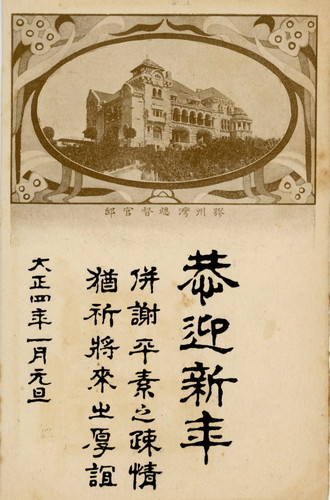 邸官督總灣州膠
恭迎新年
併謝平素之疎情
猶祈將来之厚誼
大正四年一月元旦